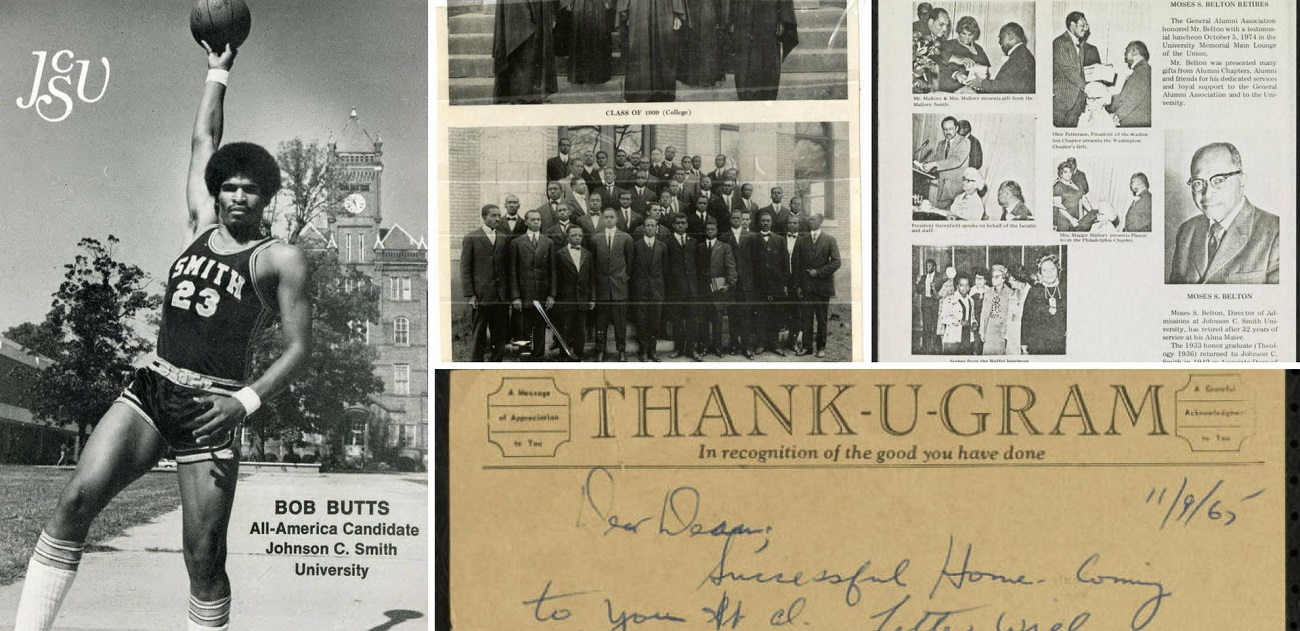 JCSU
SMITH
23
BOB BUTTS
All-America Candidate
Johnson C. Smith
University
CLASS OF 1909 (College)
Mr. Mallory & Mrs. Mallory presents gift from the
Mallory family.
President of the Washing-
ton Chapter presents the Washington
Chapter's Gift.
President Greenfield speaks on behalf of the faculty
and staff.
Mrs. Maggie Mallory presents Plaque
from the Philadelphia Chapter.
Scenes from the Buffet luncheon
MOSES S. BELTON RETIRES
The General Alumni Association
honored Mr. Belton with a testimon-
ial luncheon October 5, 1974 in the
University Memorial Main Lounge
of the Union.
Mr. Belton was presented many
gifts from Alumni Chapters, Alumni
and friends for his dedicated services
and loyal support to the General
Alumni Association and to the Uni-
versity.
MOSES S. BELTON
Moses S. Belton, Director of Ad-
missions at Johnson C. Smith Uni-
versity, has retired after 32 years of
service at his Alma Mater.
The 1933 honor graduate (Theol-
ogy 1936) returned to Johnson C.
Smith in 1942 as Associate Dean of
A Message
of Appreciation
to You
THANK-U-GRAM
A Grateful
Acknowledgment
to You
In recognition of the good you have done
11/9/65
Dear Dean;
Successful Home-Coming
to you